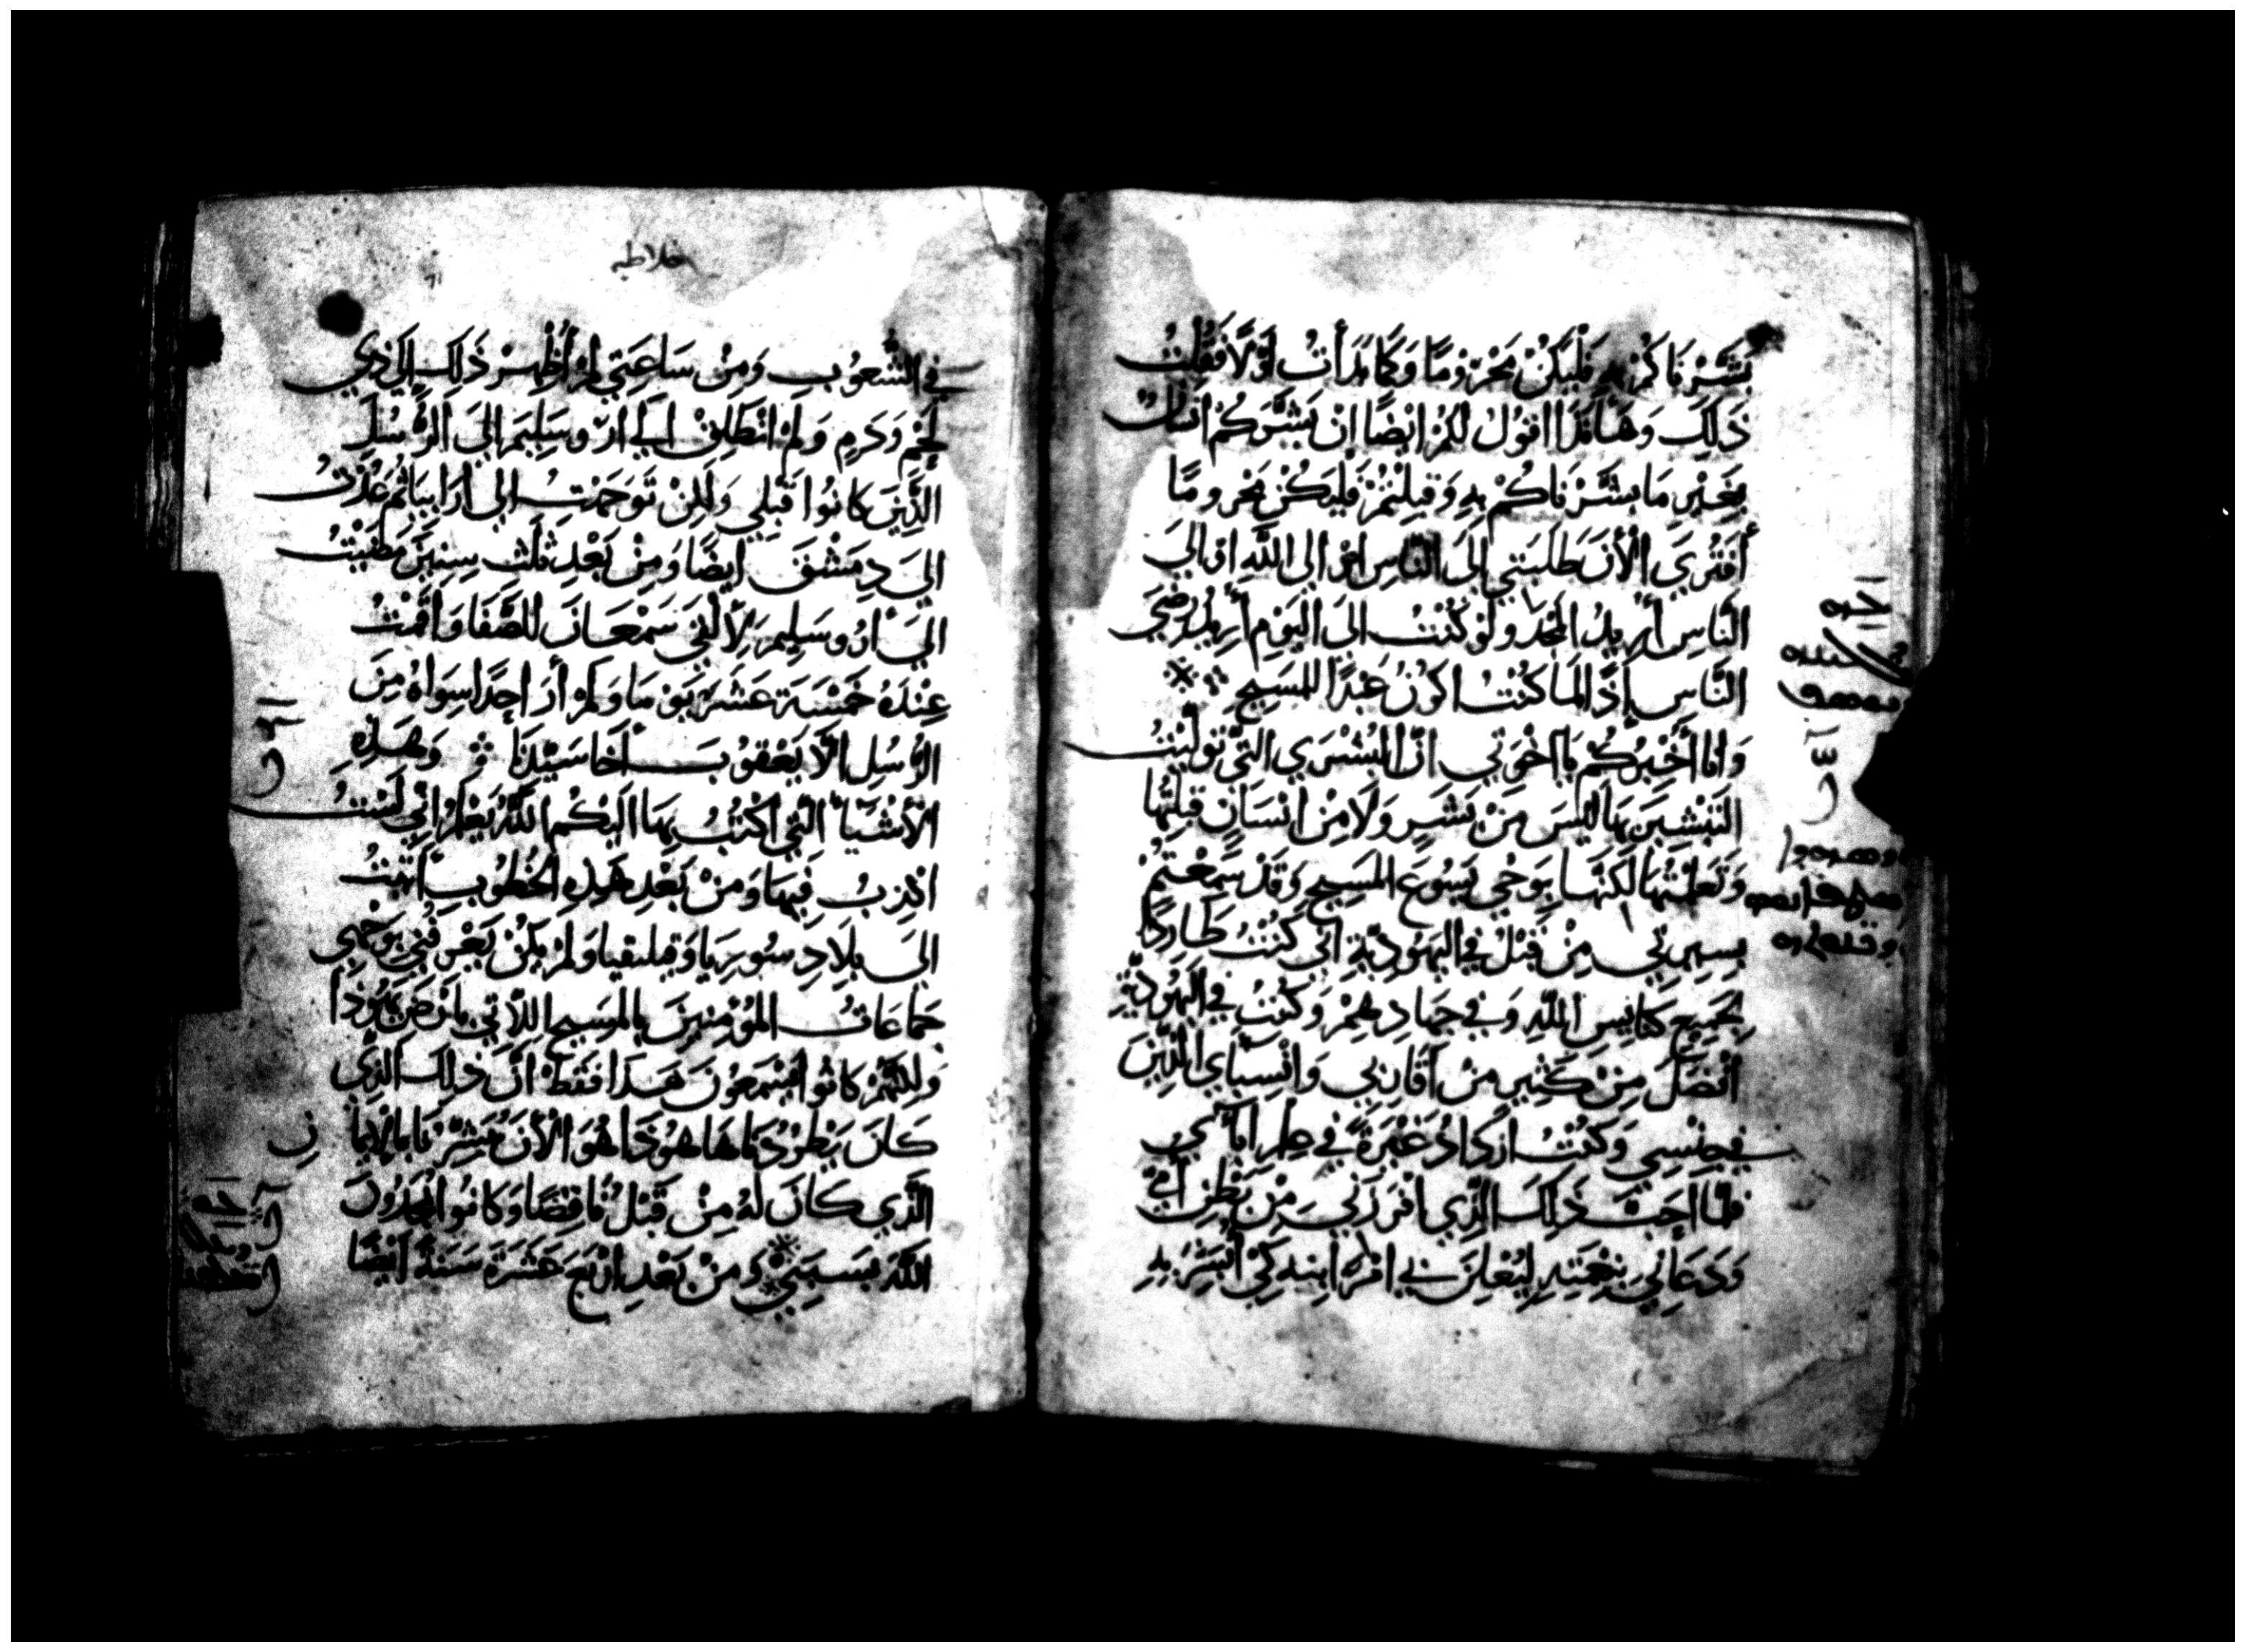 بَشَّرْنَاكُمْ بِهِ فَلْيَكُنْ مَحْرُومًا وَكَمَا بَدَأتُ اوَّلًا فَقُلْتُ
ذَلِكَ وَهَانَذَا اقُولُ لكُمْ ايْضًا انْ بَشَّرَكُمْ انسَانٌ
بِغَيْرِ مَا بشَّرْنَاكُمْ بِهِ وَقَبِلْتُمْ فَلْيَكُنْ مَحْرومًا
أفَتُرَي الْأنَ طَلَبَتي إلىَ النَّاسِ امْ الى اللَّهِ او اليَ
النَّاسِ أرِيدُ الْمَجد ولَوْ كُنْتُ الىَ اليَوْمِ أرِيدُ رِضَي
النَّاسِ إذًا لمَا كُنْتُ اكُونُ عَبْدًا للمَسِيحِ
وَانا اُخْبِرُكُمْ يَا اخْوَتي انَّ البُشْرَي التي تَوَلَّيْتُ
التَبْشِيرَ بِهَا لَيْسَ مِنْ بَشَرٍ وَلَا مِنْ انْسَانٍ قَبِلْتُهَا
وَتَعَلَّمْتُهَا لَكنَّهَا بِوَحْيِ يَسُوعَ المَسِيحِ وَقَدْ سَمِعْتُمْ
بِسِيرتي مِنْ قَبْلُ في اليَهُودِيَّةِ اني كُنْتُ طَارِدًا
لجَمِيعِ كَنَايِسِ اللَّهِ وَفي جِهَادِهِمْ وَكُنْتُ في اليَهُودِيَّةِ
افْضَلَ مِنْ كَثِيرٍ مِنْ اقْرَانِي وَانْسِبَاي الذِينَ
في جِنْسِي وَكُنْتُ ازْدَادُ غَيْرَةً في عِلمِ ابَائي
فلمَّا احَبَّ ذَلِكَ الذِي افْرَزَنِي مِنْ بَطْنِ امِّي
وَدَعَانِي بِنِعْمَتِهِ لِيُعْلِنَ بي امْرَ ابنِهِ لِكَيْ اُبَشِّرَ بِهِ
غلاطيه
في الشُّعُوبِ وَمِنْ سَاعَتِي لمْ أُظْهِرْ ذَلِكَ لِذِي
لَحْمٍ وَدَمٍ وَلَمْ انْطَلِقْ الَي ارُوسَلِيمَ الَي الرُّسُلِ
الَّذِينَ كانُوا قَبْلِي وَلكِنْ تَوَجَّهْتُ الي ارَابِيَا ثُمَّ عُدْتُ
الَي دِمَشْقَ ايضًا وَمِنْ بَعْدِ ثَلَثِ سِنِينَ مَضَيْتُ
الَي اُرُوسَلِيمَ لِألْقَي سَمْعَانَ الصَّفَا وَاقَمْتُ
عِنْدَهُ خَمْسَةَ عَشَرَ يَوْمًا وَلمْ أرَ احِدًا سِوَاهُ مِنَ
الرُّسُلِ الَّا يَعْقُوبَ اَخَا سَيِّدِنَا وَهَذِهِ
الأَشْيَا الَّتِي اكْتُبُ بِهَا اليْكُم اللَّهُ يَعْلَمُ انِّي لَسْتُ
اكْذِبُ فِيهَا وَمِنْ بَعْدِ هَذِهِ الخُطُوبِ اتَيْتُ
الىَ بِلَادِ سُورِيَا وَقيليقيا وَلمْ يَكُنْ يَعْرِفُنِي بِوَجْهِي
جَمَاعَاتُ المُؤمِنِينَ بالمَسِيحِ اللَّاتِي بِارْضِ يَهُوذَا
وَلكِنَّهُمْ كانُوا يَسْمَعُونَ هَذَا فَقَطْ انَّ ذلِكَ الذِي
كَانَ يَطْرُدُنَا هَا هُوَ ذَا هُوَ الْأنَ يُبَشِّرُنَا بِالايمَا
نِ
الَّذِي كَانَ لَهُ مِنْ قَبْلُ نَاقِضًا وَكَانُوا يُمَجِّدُونَ
اللَّهَ بِسَبَبِي وَمِنْ بَعْدِ ارْبَعَ عَشْرَةَ سَنَةً ايْضًا